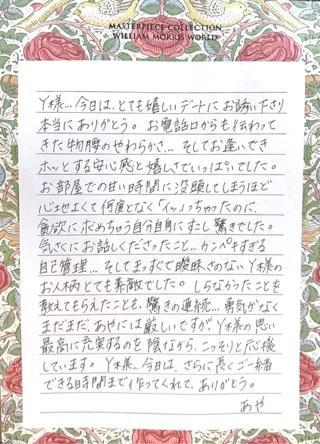 MASTERPIECE COLLECTION
WILLIAM MORRIS WORLD
Y様…今日は、とても嬉しいデートにお誘い下さり
本当にありがとう。お電話口からも伝わって
きた物腰のやわらかさ…そしてお逢いでき
ホッとする安心感と嬉しさでいっぱいでした。
お部屋での甘い時間に没頭してしまうほど
心地よくて何度となく「イッ」っちゃったのに、
貪欲に求めちゃう自分自身にすこし驚きでした。
気さくにお話しくださったこと…カンペキすぎる
自己管理…そしてまっすぐで曖昧さのないY様の
お人柄とても素敵でした。しらなかったことを
教えてもらえたことも、驚きの連続…勇気がなく
まだまだ、あやには厳しいですがY様の思い
最高に充実するのを陰ながら、こっそりと応援
しています。Y様…今日は、さらに長くご一緒
できる時間まで作ってくれて、ありがとう。
あや